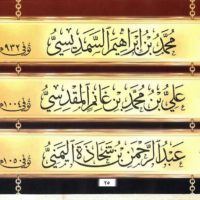 مُحَمَّدُ بْنُ إِبْرَاهِيمَ السَّمَدِيسِيُّ توفي ٩٣٢هـ
عَلِيُّ بْنُ مُحَمَّدِ بْنِ غَانِمٍ الْمَقْدِسِيُّ توفي ١٠٠٤هـ
عَبْدُ الرَّحْمَنِ بْنُ شَحَاذَةَ الْيَمَنِيُّ توفي ١٠٥٠هـ
٢٥